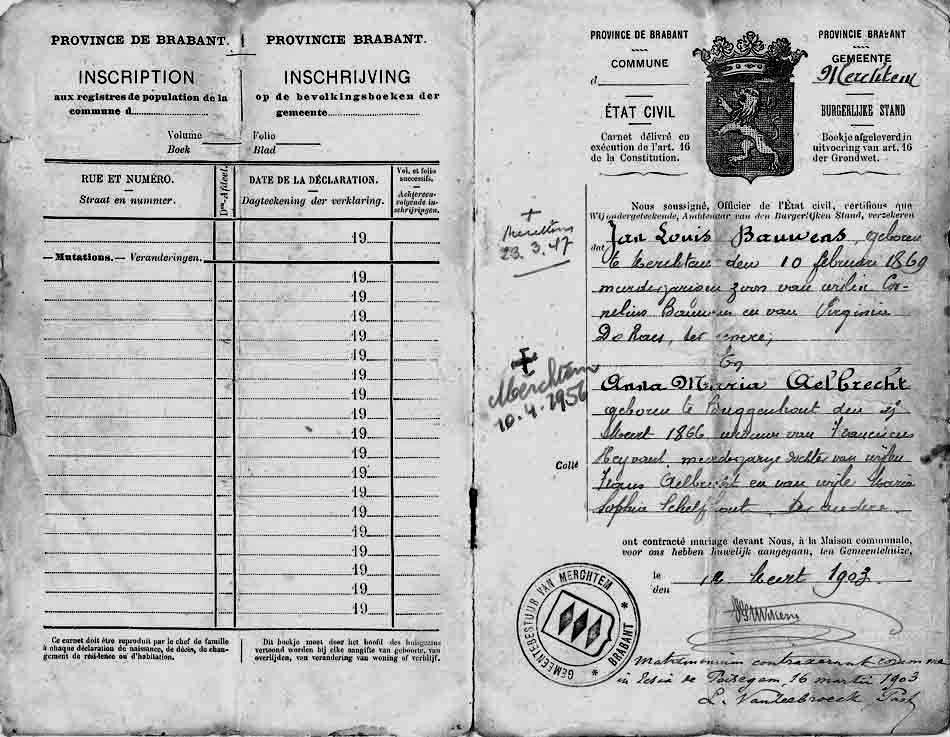 PROVINCE DE BRABANT.
INSCRIPTION
aux registres de population de la
commune d
Volume
Boek
PROVINCIE BRABANT.
INSCHRIJVING
op de bevolkingsboeken der
gemeente
Folio
Blad
RUE ET NUMÉRO.
Straat en nummer.
DATE DE LA DÉCLARATION.
Dagteekening der verklaring.
Vol. et folio
successifs.
Achtereen-
volgende in-
schrijvingen.
19
— Mutations. — Veranderingen.
19
19
19
19
19
19
19
19
19
19
19
19
19
19
19
19
19
19
Ce carnet doit être reproduit par le chef de famille
à chaque déclaration de naissance, de décès, de chan-
gement de résidence ou d'habitation.
Dit boekje moet door het hoofd des huisgezins
vertoond worden bij elke aangifte van geboorte, van
overlijden, van verandering van woning of verblijf.
PROVINCE DE BRABANT
COMMUNE
d
ÉTAT CIVIL
Carnet délivré en
exécution de l'art. 16
de la Constitution.
PROVINCIE BRABANT
GEMEENTE
Merchtem
BURGERLIJKE STAND
Boekje afgeleverd in
uitvoering van art. 16
der Grondwet.
Nous soussigné, Officier de l'État civil, certifions que
Wij ondergeteekende, Ambtenaar van den Burgerlijken Stand, verzekeren
dat Jan Louis Bauwens, geboren
te Merchtem den 10 februari 1869
meerderjarigen zoon van wijlen Cor-
nelius Bauwens en van Virginia
De Raes, ter eenre;
En
Anna Maria Aelbrecht
geboren te Buggenhout den
Meert 1866 weduwe van Franciscus
Heyvaert, meerderjarige dochter van wijlen
Frans Aelbrecht en van wijle Maria
Sophia Schelfhout ter andere.
+
Merchtem
23.3.47
+
Merchtem
10.4.1956
Collé
ont contracté mariage devant Nous, à la Maison communale,
voor ons hebben huwelijk aangegaan, ten Gemeentehuize,
le
den
Meert 1903
GEMEENTEBESTUUR VAN MERCHTEM
* BRABANT *
Matrimonium contraxerunt coram me
in Eclia de Peisegem 16 martii 1903
L. Vandenbroeck, Past